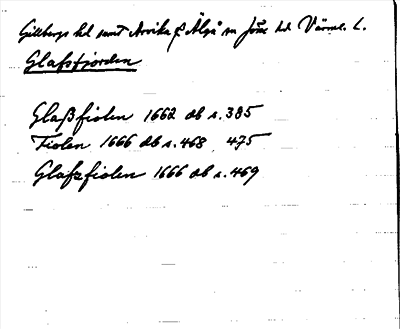 Gillbergs hd samt Arvika o Älgå sn Jösse hd Värml. L.
Glafsfjorden
Glaßfiolen 1662 db s. 385
Fiolen 1666 db s. 468, 475
Glafzfiolen 1666 db s. 469